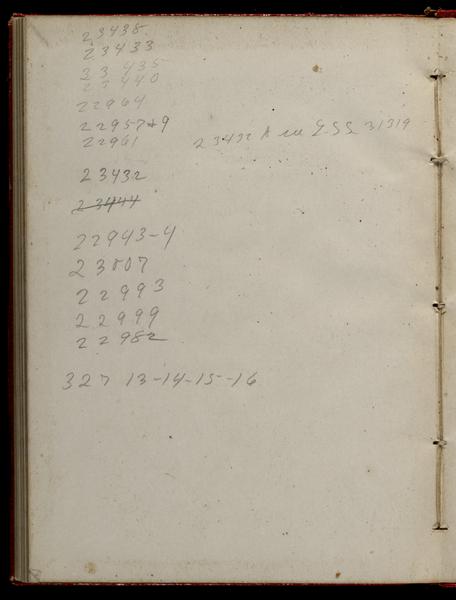 23438
23433
23435
23440
22964
22957+9
22961
23432 A see G.SS 31319
23432
23444
22943-4
23007
22993
22999
22982
327 13-14-15-16